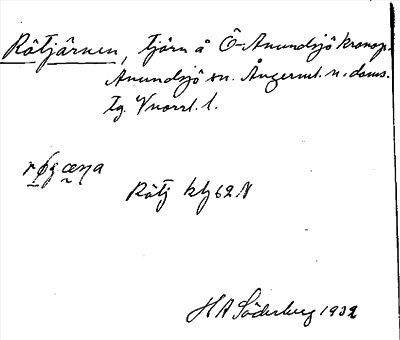 Rötjärnen, tjärn å Ö-Anundsjö kronop.
Anundsjö sn. Ångerml. n. doms.
tg. Vnorrl. l.
Rötj kbl 62 N
H A Söderberg 1932